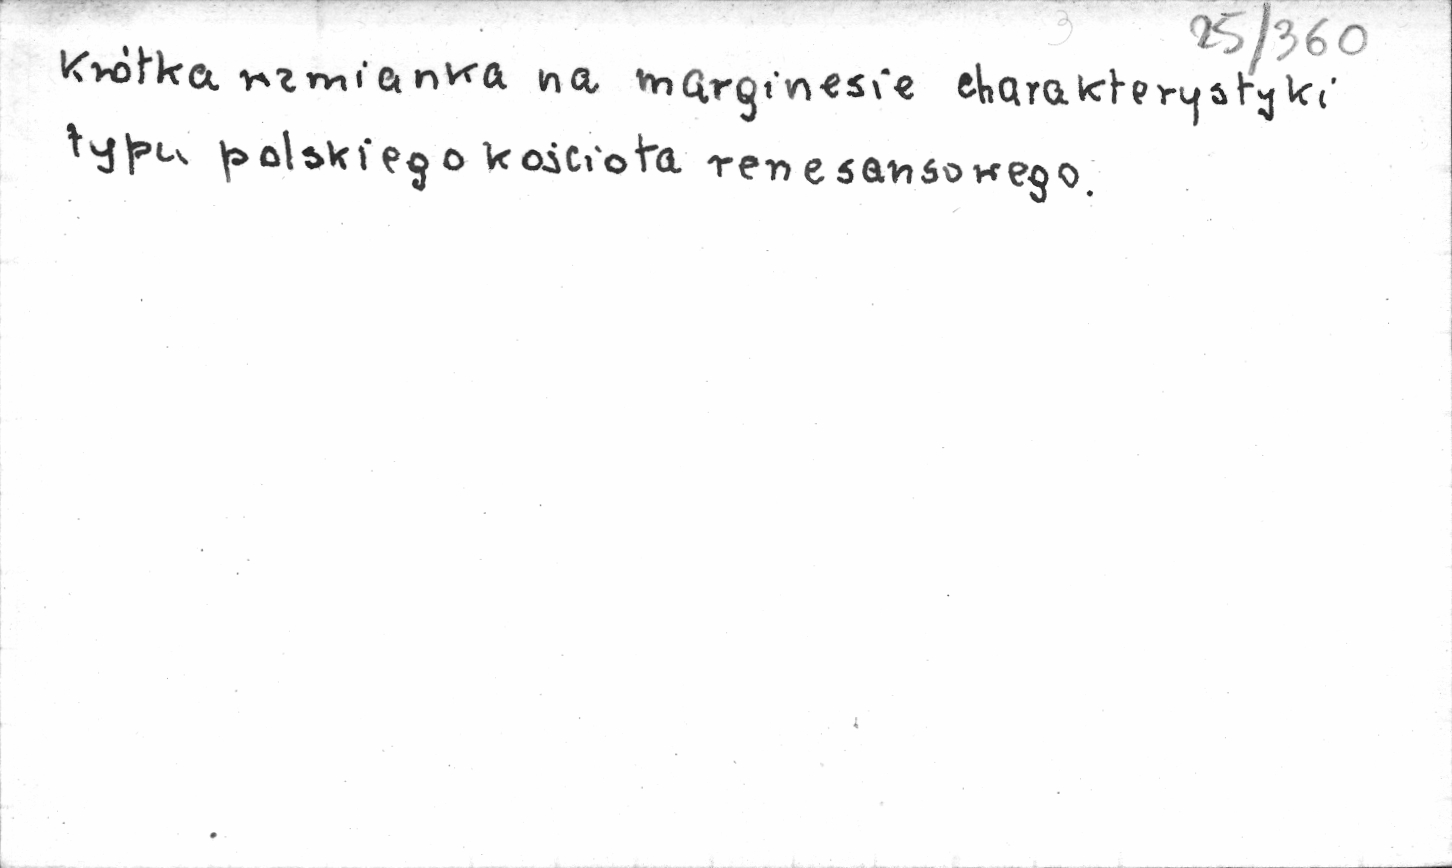 3
25/360
Krótka wzmianka na marginesie charakterystyki
typu polskiego kościoła renesansowego.